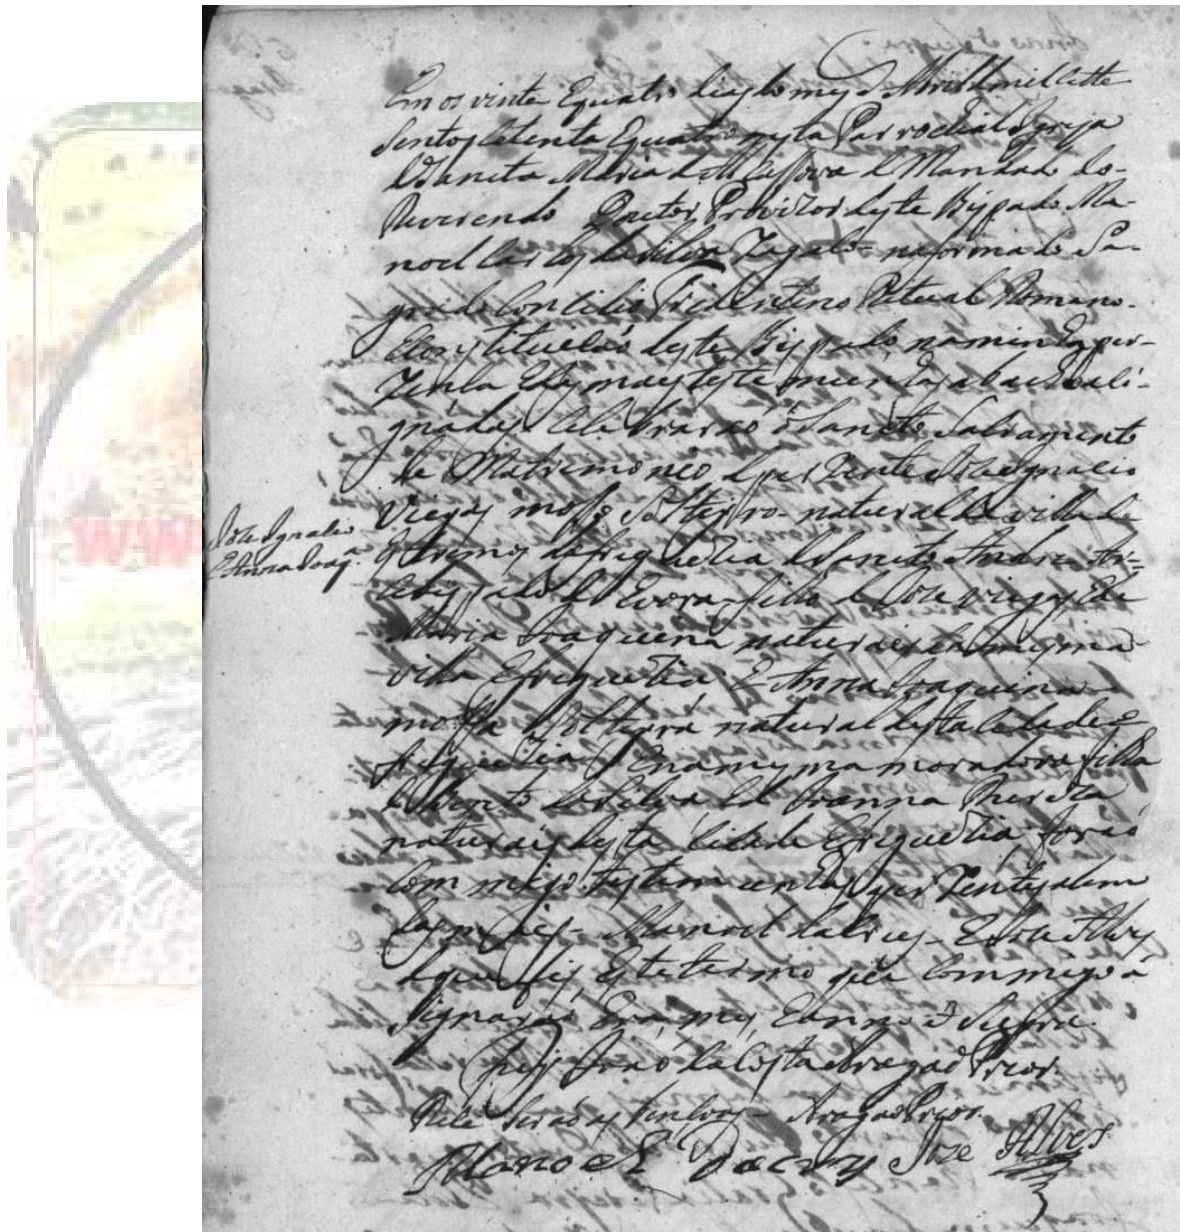 Em os vinte Equatro dias do mes d Abril d mil Sette
Sentos Setenta Equatro nesta Parrochial Igreja
d Sancta Maria d Alcassova d Mandado do
Reverendo Doctor Provizor deste Bispado Ma-
noel da Silva Zagalo = na forma do Sa-
grado Concilio Tridentino Ritual Romano
Constituicaó deste Bispado, na minha pre-
zensa E das mais testemunhas abaixo asi-
gnadas Celebraraó o Sancto Sacramento
de Matremoneo d prezente Jose Ignacio
Viegas mosso Solteiro natural da villa de
Jose Ignacio
E Anna Joaq.a
Estremos da freguezia d Sancto Andre Ar-
cebispado de Evora filho d Jose Viegas E d
Maria Joaquina naturaes da mesma
villa E freguezia E Anna Joaquina
mossa Solteira natural desta Cidade E
freguezia E na mesma moradora filha
d Bento da Silva E d Joanna Thereza
naturais desta Cidade E freguezia foraó
Commigo testemunhas prezentes alem
das mais Manoel E Jose Alves
d que fiz este termo que Commigo a
Signaraó Era, mes, E anno d Supra
da Costa Aragaó Prior.
Aragaó Prior
Manoel Jose Alves